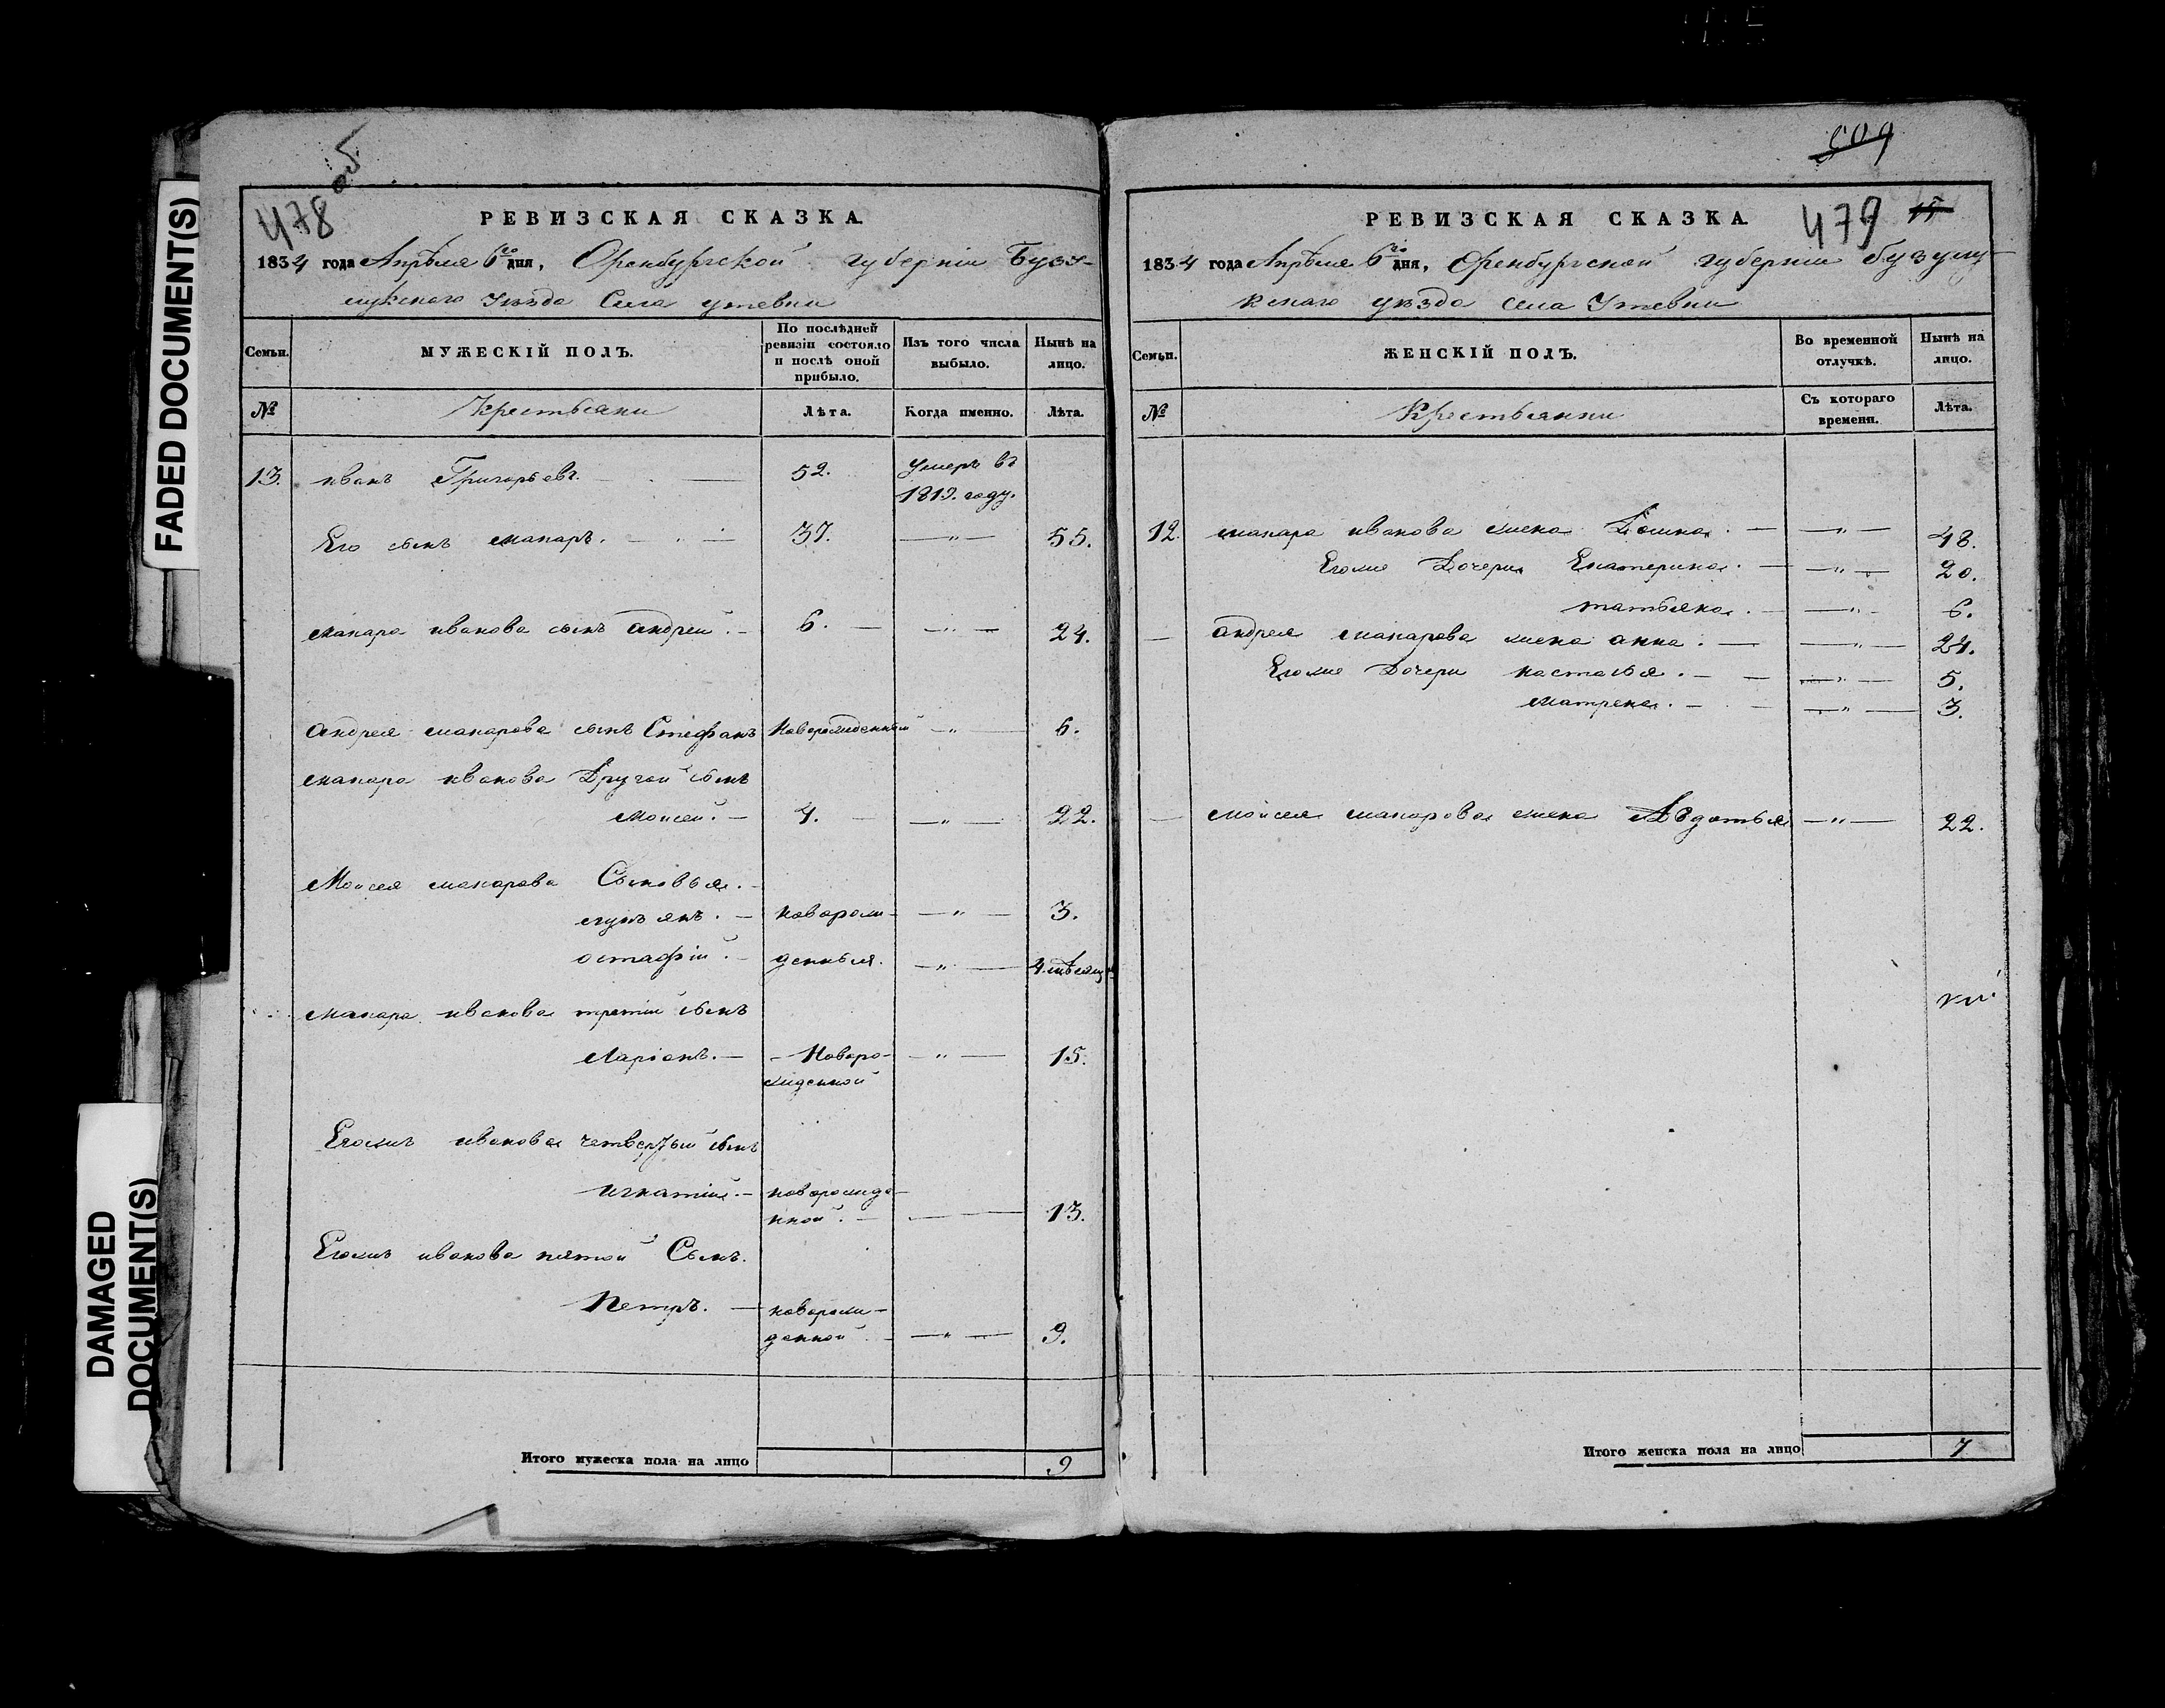 FADED DOCUMENT(S)
DAMAGED
DOCUMENT(S)
478 об
РЕВИЗСКАЯ СКАЗКА.
1834 года Апрѣля 6го дня, Оренбургской губерніи Бузу-
лукского Уѣзда Села утевки
Семьи. МУЖЕСКІЙ ПОЛЪ. По послѣдней ревизіи состояло и послѣ оной прибыло. Изъ того числа выбыло. Нынѣ на лицо.
№ Крестьяни Лѣта. Когда именно. Лѣта.
13. иванъ Григорьевъ. 52. Умеръ въ
1819. году.
Его сынъ макаръ. 37. — " — 55.
макара иванова сынъ андрей. 6. — " — 24.
андрея макарова сынъ Стефанъ Новорожденный — " — 6.
макара иванова Другой сынъ
моисей. 4. — " — 22.
Моисея макарова Сыновья.
лукъянъ. новорож- — " — 3.
остафій. денныя. — " — 4. мѣсяц
макара иванова третій сынъ
Ларіонъ. Новоро- — " — 15.
жденной
Егожъ иванова четвертый сынъ
игнатій. новорожде-
нной. — 13.
Егожъ иванова пятой Сынъ.
Петръ. новорож-
денной — " — 9.
Итого мужеска пола на лицо 9
509
479 15
РЕВИЗСКАЯ СКАЗКА
1834 года Апрѣля 6го дня, Оренбургской губерніи бузулу-
кскаго уѣзда села Утевки
Семьи. ЖЕНСКІЙ ПОЛЪ. Во временной отлучкѣ. Нынѣ на лицо.
№ Крестьянки Съ котораго времени. Лѣта.
12. макара иванова жена Домна. — " — 48.
Егоже Дочери Екатерина. — " — 20.
татьяна. — " — 6.
— андрея макарова жена анна. — " — 24.
Егоже Дочери настасья. — " — 5.
матрена. — " — 3.
— моисея макарова жена Авдотья — " — 22.
Итого женска пола на лицо 7